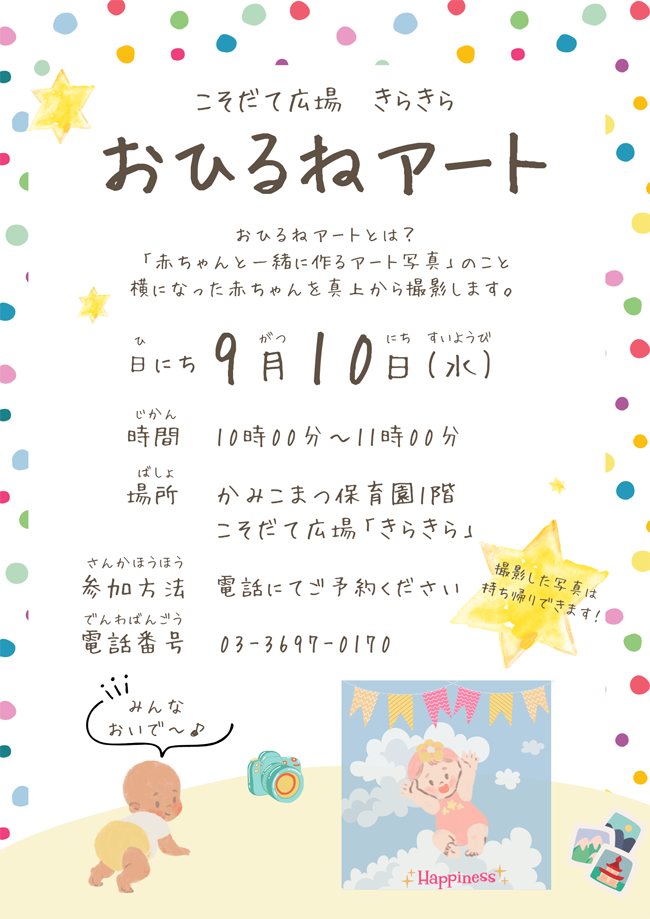 こそだて広場 きらきら
おひるねアート
おひるねアートとは？
「赤ちゃんと一緒に作るアート写真」のこと
横になった赤ちゃんを真上から撮影します。
ひ がつ にち すいようび
日にち 9月10日(水)
じかん
時間 10時00分～11時00分
ばしょ
場所 かみこまつ保育園1階
こそだて広場「きらきら」
さんかほうほう
参加方法 電話にてご予約ください
でんわばんごう
電話番号 03-3697-0170
撮影した写真は
持ち帰りできます！
みんな
おいで～♪
Happiness